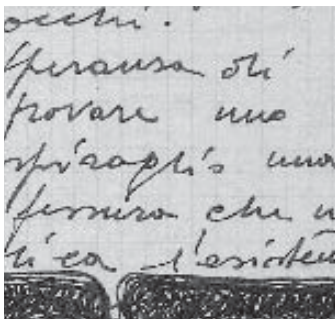 occhi.
speranza di
trovare uno
spiraglio una
fessura che
l'esisten